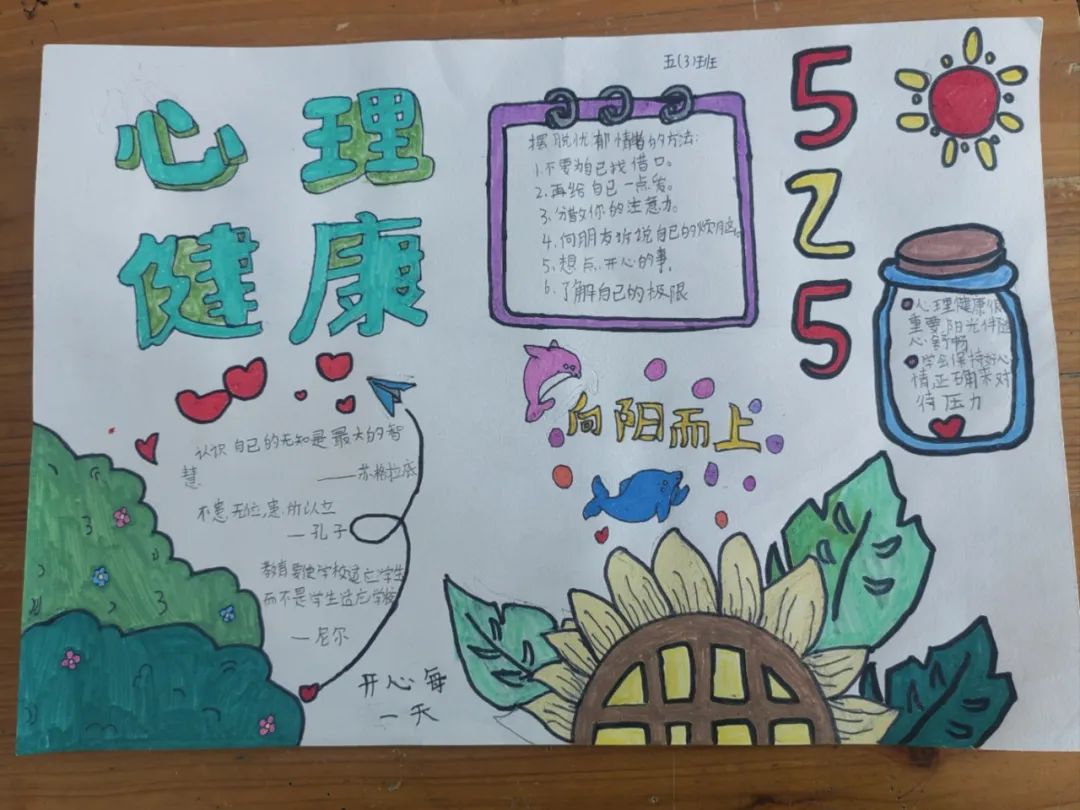 五(3)班
心理
健康
摆脱忧郁情绪的方法:
1.不要为自己找借口。
2.再给自己一点爱。
3.分散你的注意力。
4.向朋友诉说自己的烦脑。
5.想点开心的事,
6.了解自己的极限
5
2
5
心理健康很
重要,阳光伴随
心舒畅
学会保持好心
情正确来对
待压力
向阳而上
认识自己的无知是最大的智
慧
——苏格拉底
不患无位,患所以立
—孔子
教育要使学校适应学生
而不是学生适应学校
—尼尔
开心每
一天